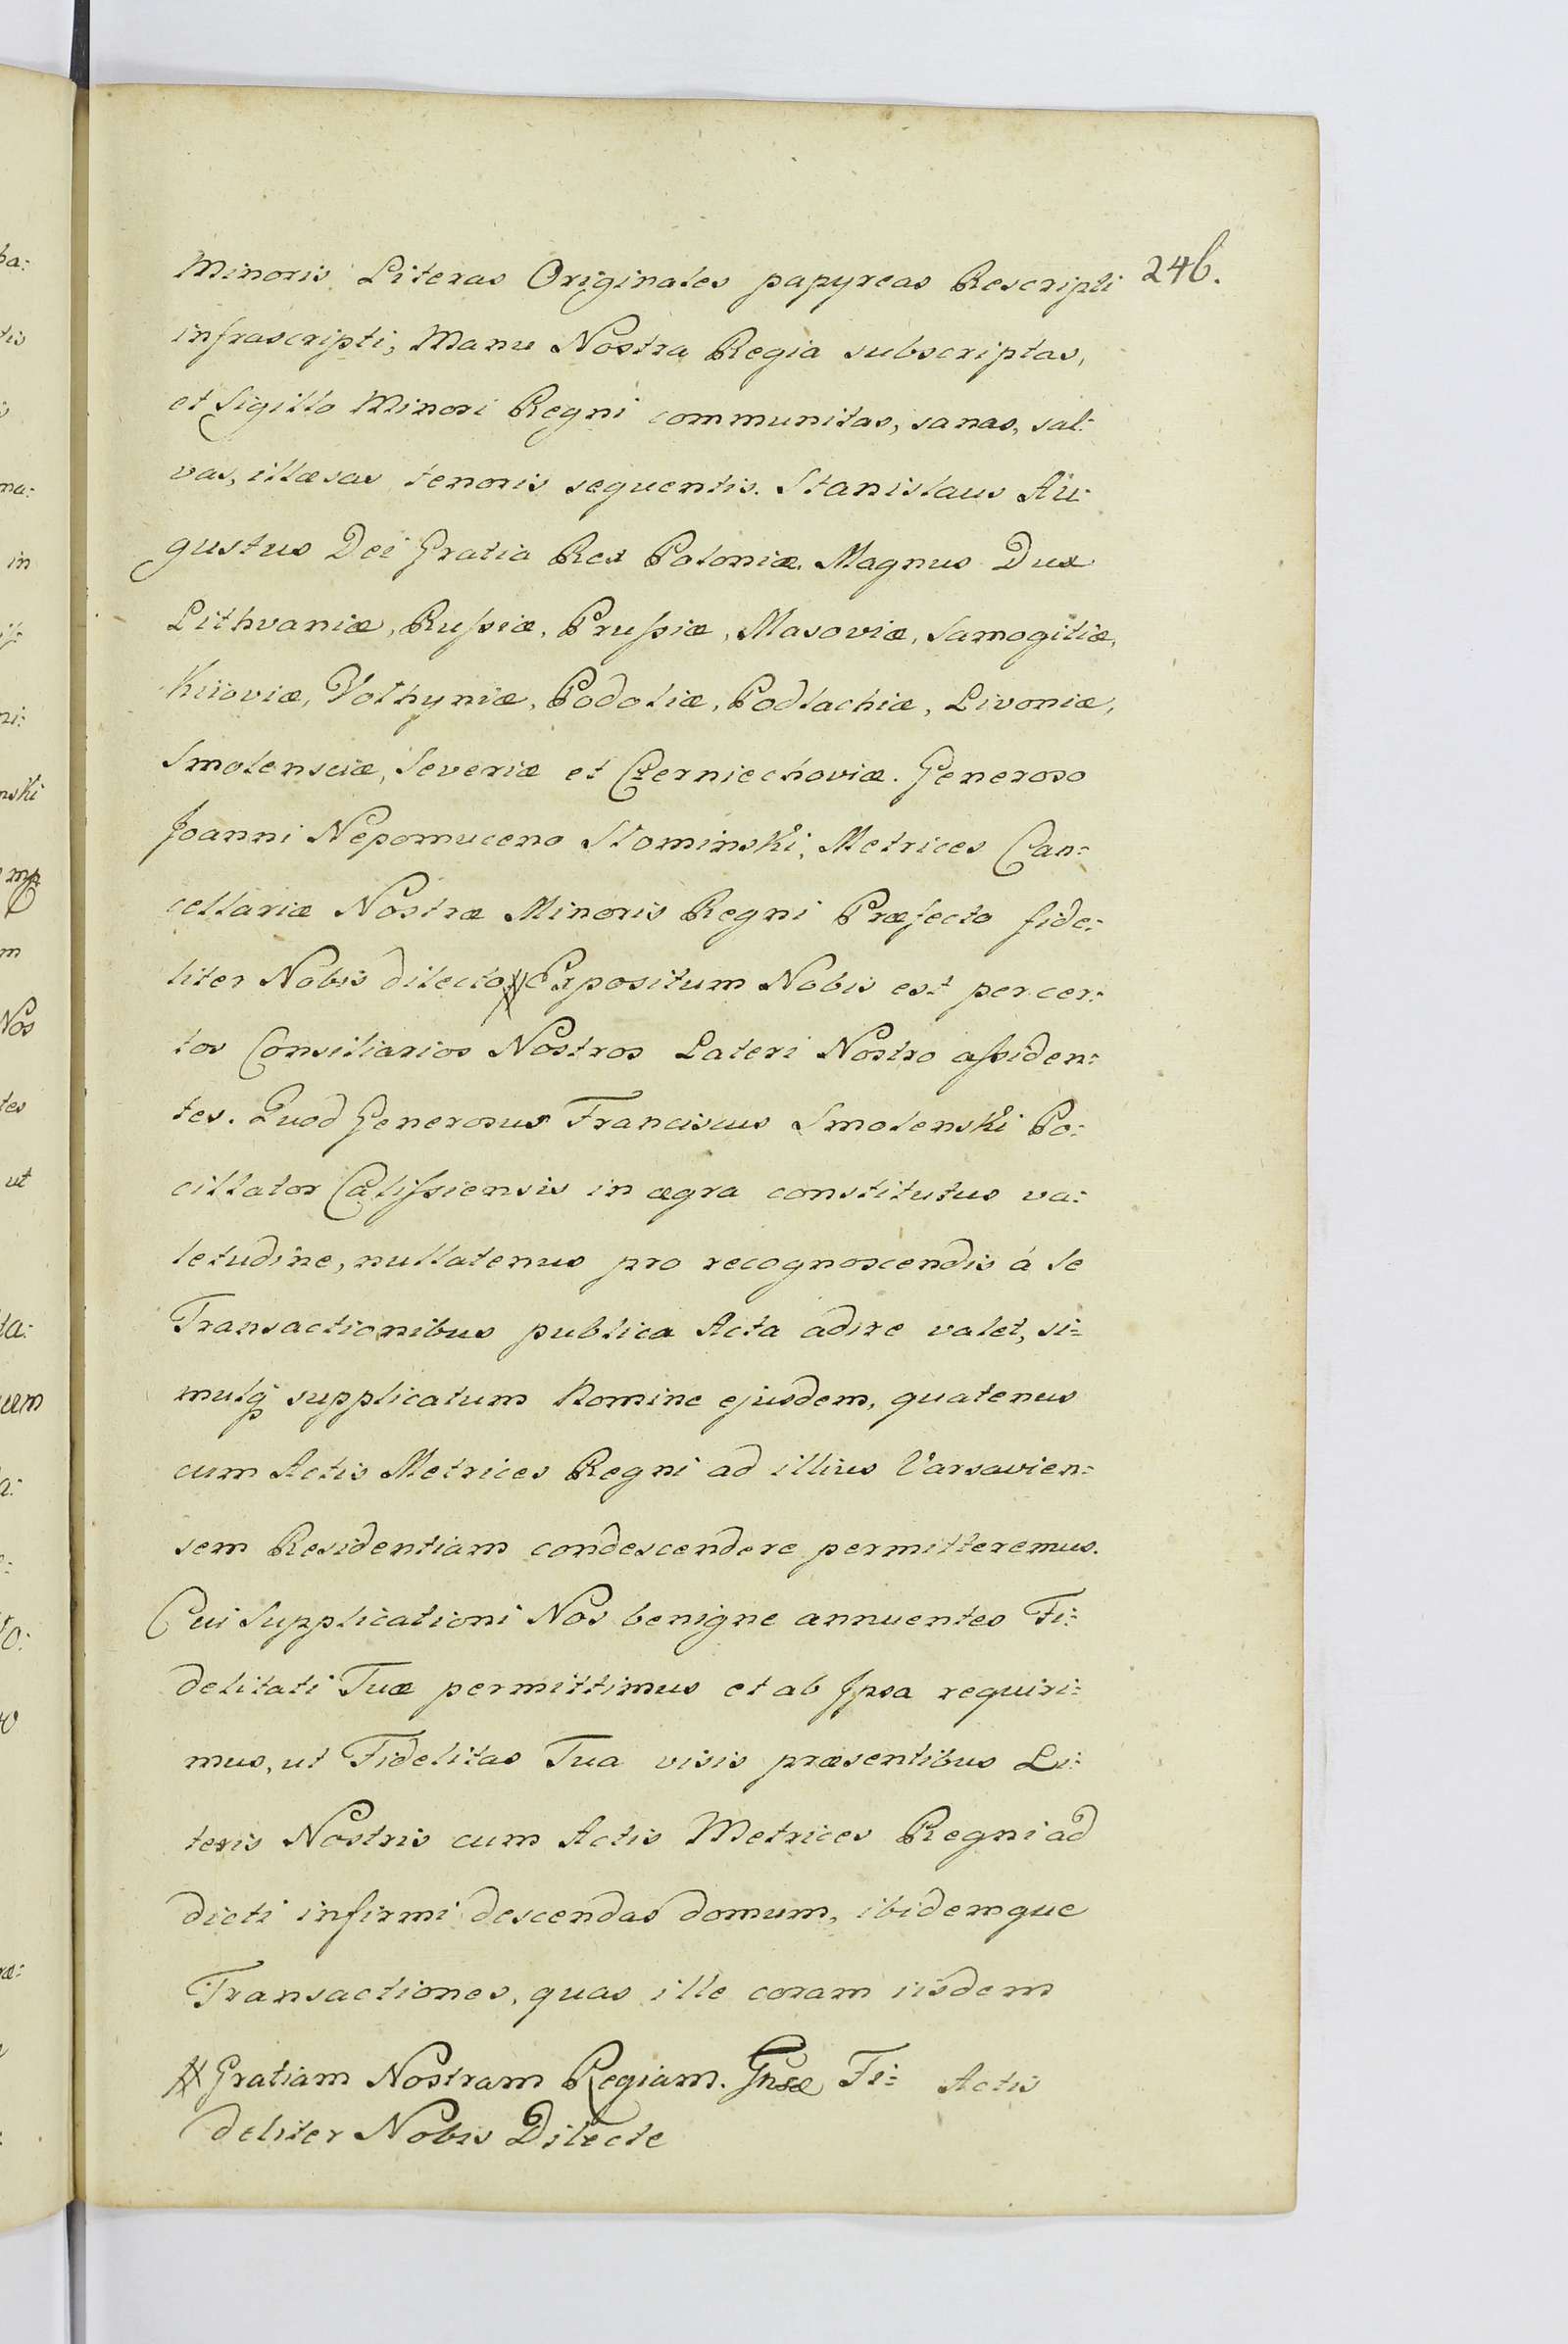 Minoris Literas Originales papyreas Rescripti 246.
infrascripti, Manu Nostra Regia subscriptas,
et Sigillo Minori Regni communitas, sanas, sal:
vas, illæsas tenoris sequentis. Stanislaus Au:
gustus Dei Gratia Rex Poloniæ. Magnus Dux
Lithvaniæ, Rußiæ, Prußiæ, Masoviæ, Samogitiæ,
Kiioviæ, Volhyniæ, Podoliæ, Podlachiæ, Livoniæ,
Smolensciæ, Severiæ et Czerniechoviæ. Generoso
Joanni Nepomuceno Slominski, Metrices Can:
cellariæ Nostræ Minoris Regni Præfecto fide:
liter Nobis dilecto # Expositum Nobis est per cer:
tos Consiliarios Nostros Lateri Nostro aßiden:
tes. Quod Generosus Franciscus Smolenski Po:
cillator Calißiensis in ægra constitutus va:
letudine, nullatenus pro recognoscendis á se
Transactionibus publica Acta adire valet, si:
mulq supplicatum Nomine ejusdem, quatenus
cum Actis Metrices Regni ad illius Varsavien:
sem Residentiam condescendere permitteremus.
Cui Supplicationi Nos benigne annuentes Fi:
delitati Tuæ permittimus et ab Ipsa requiri:
mus, ut Fidelitas Tua visis præsentibus Li:
teris Nostris cum Actis Metrices Regni ad
dicti infirmi descendas domum, ibidemque
Transactiones, quas ille coram iisdem
# Gratiam Nostram Regiam. Gnse Fi: Actis
deliter Nobis Dilecte